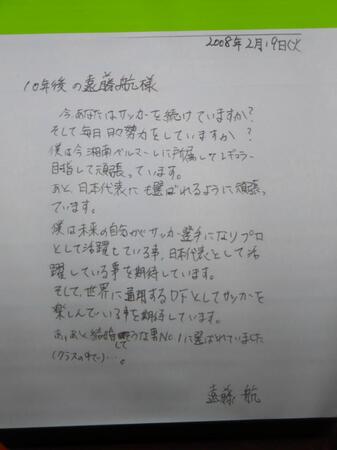 2008年2月19日(火)
10年後の遠藤航様
今、あなたはサッカーを続けていますか?
そして毎日日々努力をしていますか?
僕は今湘南ベルマーレに所属してレギュラー
目指して頑張っています。
あと、日本代表にも選ばれるように頑張っ
ています。
僕は未来の自分がサッカー選手になりプロ
として活躍している事、日本代表として活
躍している事を期待しています。
そして、世界に通用するDFとしてサッカーを
楽しんでいる事を期待しています。
あ、あと結婚してそうな男No.1に選ばれていました
(クラスの中で)…。
遠藤 航